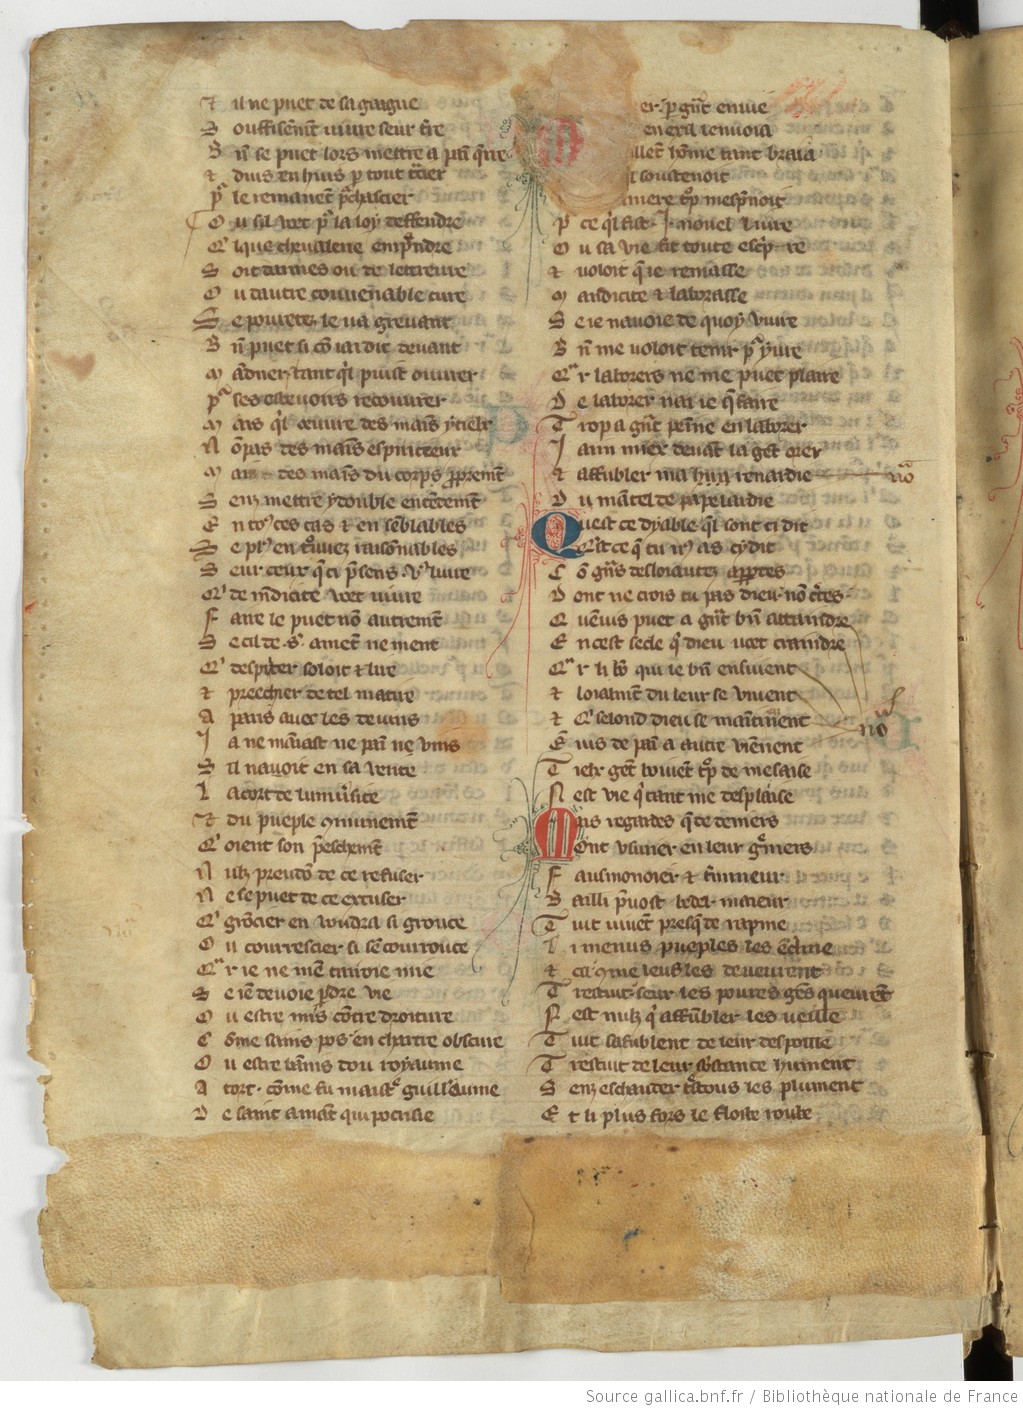 Et il ne puet de sa gaigne
Souffisenmt vivre seur tre
Bn se puet lors mettre a pain querre
Et dius en huis p tout tcier
Pr le remanent pchascier
Ou sil vuet pr la loy deffendre
Qlque chevalerie empndre
Soit darmes ou de lettreure
Ou dautre couvenable cure
Se povrete le va grevant
Bn puet si com iai dit devant
Madner tant ql puist ouvrer
Pr ses estevoirs recouvrer
Mais ql oeuvre des mains ytielx
Non pas des mains espiriteux
Mais des mains du corps proprement
Senz mettre y double entendement
En touz ces cas et en semblables
Se plus en truvez raisonnables
Seur ceux que ci presens vous livre
Qui de mendicite vuet vivre
Faire le puet non autrement
Se cil de st amant ne ment
Qui desputer soloit et lire
Et preeschier de tel matire
A paris avec les devins
Ja ne maiast ne pain ne vins
Sil navoit en sa verite
Lacort de luniversite
Et du pueple communement
Qui oient son preeschement
Nulz preudons de ce refuser
Ne se puet de ce excuser
Qui groucier en voudra si grouce
Ou courrescier si sen courrouce
Quar ie ne men tairoie mie
Se ien devoie perdre vie
Ou estre mis contre droiture
Comme sains pos en chartre obscure
Ou estre bannis dou royaume
A tort comme fu maistre guillaume
De saint amant qui pocrisie
er par grant envie
en exil lenvoia
vaillent homme tant braia
soustenoit
mere trop mesprenoit
Pour ce ql fist j nouvel livre
Ou sa vie fit toute escrire
Et voloit que ie reniasse
Mandicite et laborasse
Se ie navoie de quoy vivre
Bn me voloit tenir pour yvre
Quar laborers ne me puet plaire
De laborer nai ie que faire
Trop a grant peine en laborer
Jaim miex devant la gent orer
Et affubler ma renardie
Du mantel de papelardie
Quest ce dyable ql sont ci dit
Quest ce que tu mas cy dit
Con grans desloiautez appertes
Dont ne crois tu pas dieu non certes
Qvenius puet a grant bn attaindre
En cest secle qui dieu vuet craindre
Quar li bon qui le bien ensuivent
Et loiaument du leur se vivent
Et qui selonc dieu se maintiennent
Enuis de pain a autre viennent
Tielx gent boivent trop de mesaise
Nest vie qui tant me desplaise
Mais regardes que de deniers
Ont usurier en leur greniers
Fausmonoier et termineur
Bailli prevost bedel maieur
Tuit vivent presque de rapine
Li menus pueples les encline
Et cil comme leus les deveurent
Trestuit seur les poures gens queurent
Nest nulz qui affubler les veille
Tuit saffublent de leur despoille
Trestuit de leur substance hument
Senz eschauder trestous les plument
Et li plus fors le floibe roube